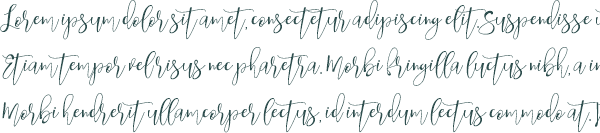 Lorem ipsum dolor sit amet, consectetur adipiscing elit. Suspendisse
Etiam tempor vel risus nec pharetra. Morbi fringilla luctus nibh, a in
Morbi hendrerit ullamcorper lectus, id interdum lectus commodo at.